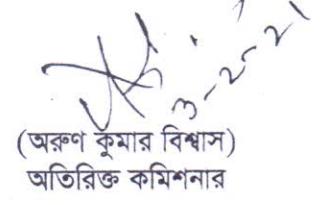 ৩-২-২১
(অরুণ কুমার বিশ্বাস)
অতিরিক্ত কমিশনার